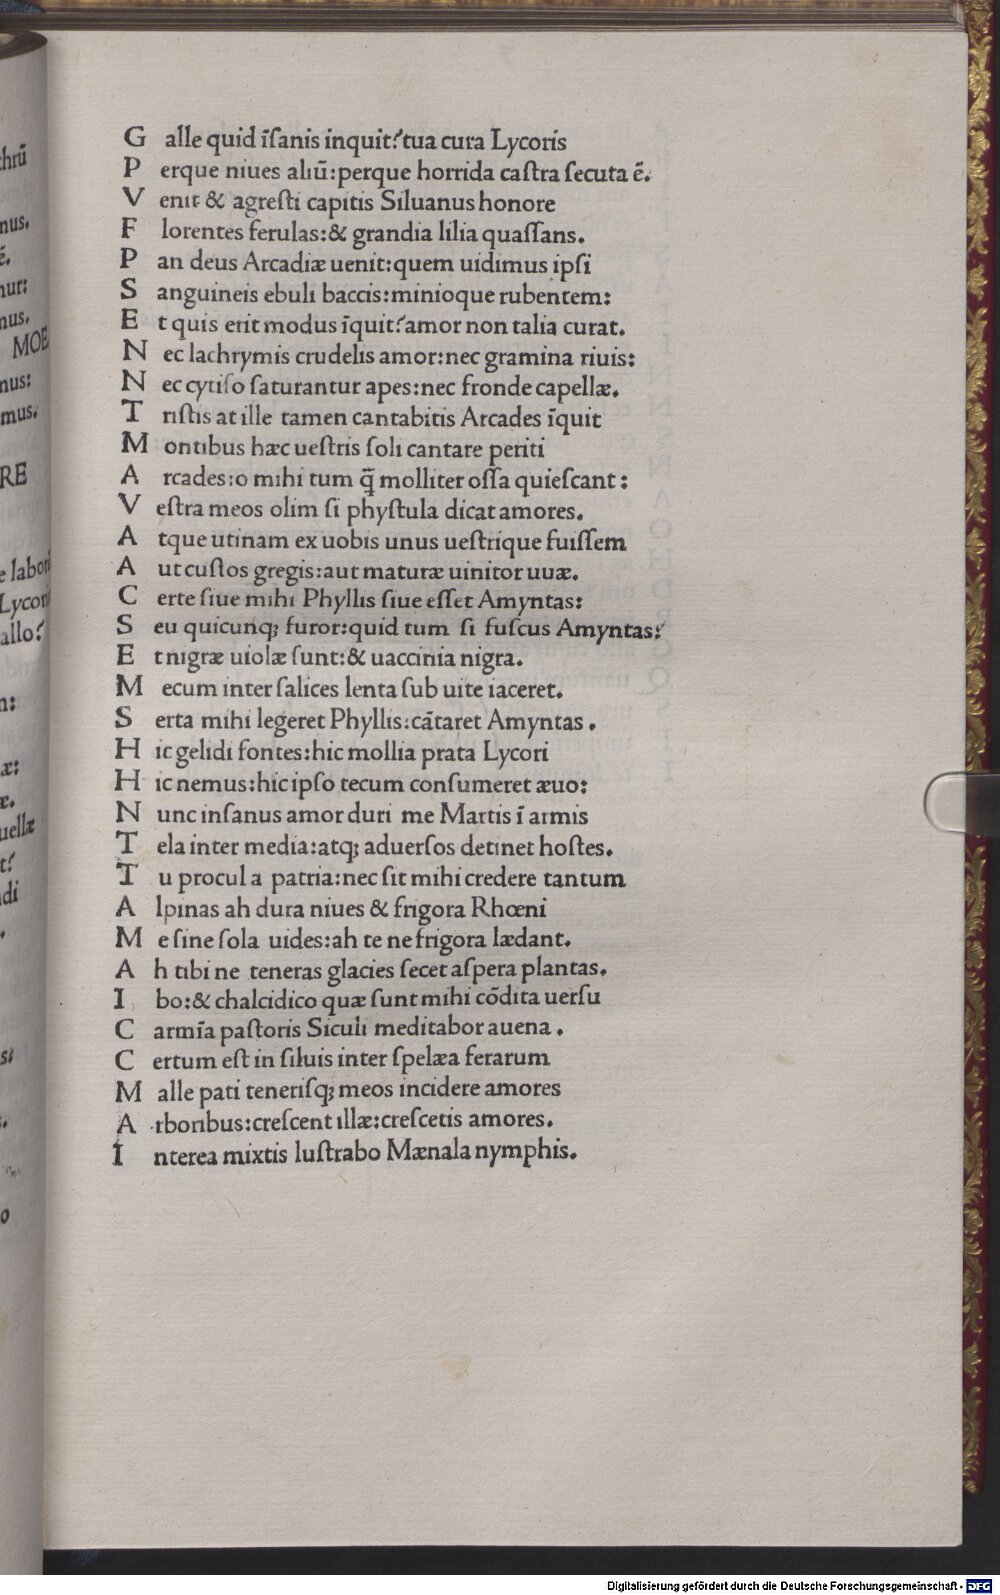 G alle quid īſanis inquit? tua cura Lycoris
P erque niues aliū: perque horrida caſtra ſecuta ē.
V enit & agreſti capitis Siluanus honore
F lorentes ferulas: & grandia lilia quaſſans.
P an deus Arcadiæ uenit: quem uidimus ipſi
S anguineis ebuli baccis: minioque rubentem:
E t quis erit modus īquit? amor non talia curat.
N ec lachrymis crudelis amor: nec gramina riuis:
N ec cytiſo ſaturantur apes: nec fronde capellæ.
T riſtis at ille tamen cantabitis Arcades īquit
M ontibus hæc ueſtris ſoli cantare periti
A rcades: o mihi tum q̄ molliter oſſa quieſcant:
V eſtra meos olim ſi phyſtula dicat amores.
A tque utinam ex uobis unus ueſtrique fuiſſem
A ut cuſtos gregis: aut maturæ uinitor uuæ.
C erte ſiue mihi Phyllis ſiue eſſet Amyntas:
S eu quicunq; furor: quid tum ſi fuſcus Amyntas?
E t nigræ uiolæ ſunt: & uaccinia nigra.
M ecum inter ſalices lenta ſub uite iaceret.
S erta mihi legeret Phyllis: cātaret Amyntas.
H ic gelidi fontes: hic mollia prata Lycori
H ic nemus: hic ipſo tecum conſumeret æuo:
N unc inſanus amor duri me Martis ī armis
T ela inter media: atq; aduerſos detinet hoſtes.
T u procul a patria: nec ſit mihi credere tantum
A lpinas ah dura niues & frigora Rhœni
M e ſine ſola uides: ah te ne frigora lædant.
A h tibi ne teneras glacies ſecet aſpera plantas.
I bo: & chalcidico quæ ſunt mihi cōdita uerſu
C armīa paſtoris Siculi meditabor auena.
C ertum eſt in ſiluis inter ſpelæa ferarum
M alle pati teneriſq; meos incidere amores
A rboribus: creſcent illæ: creſcetis amores.
I nterea mixtis luſtrabo Mænala nymphis.
Digitalisierung gefördert durch die Deutsche Forschungsgemeinschaft - DFG